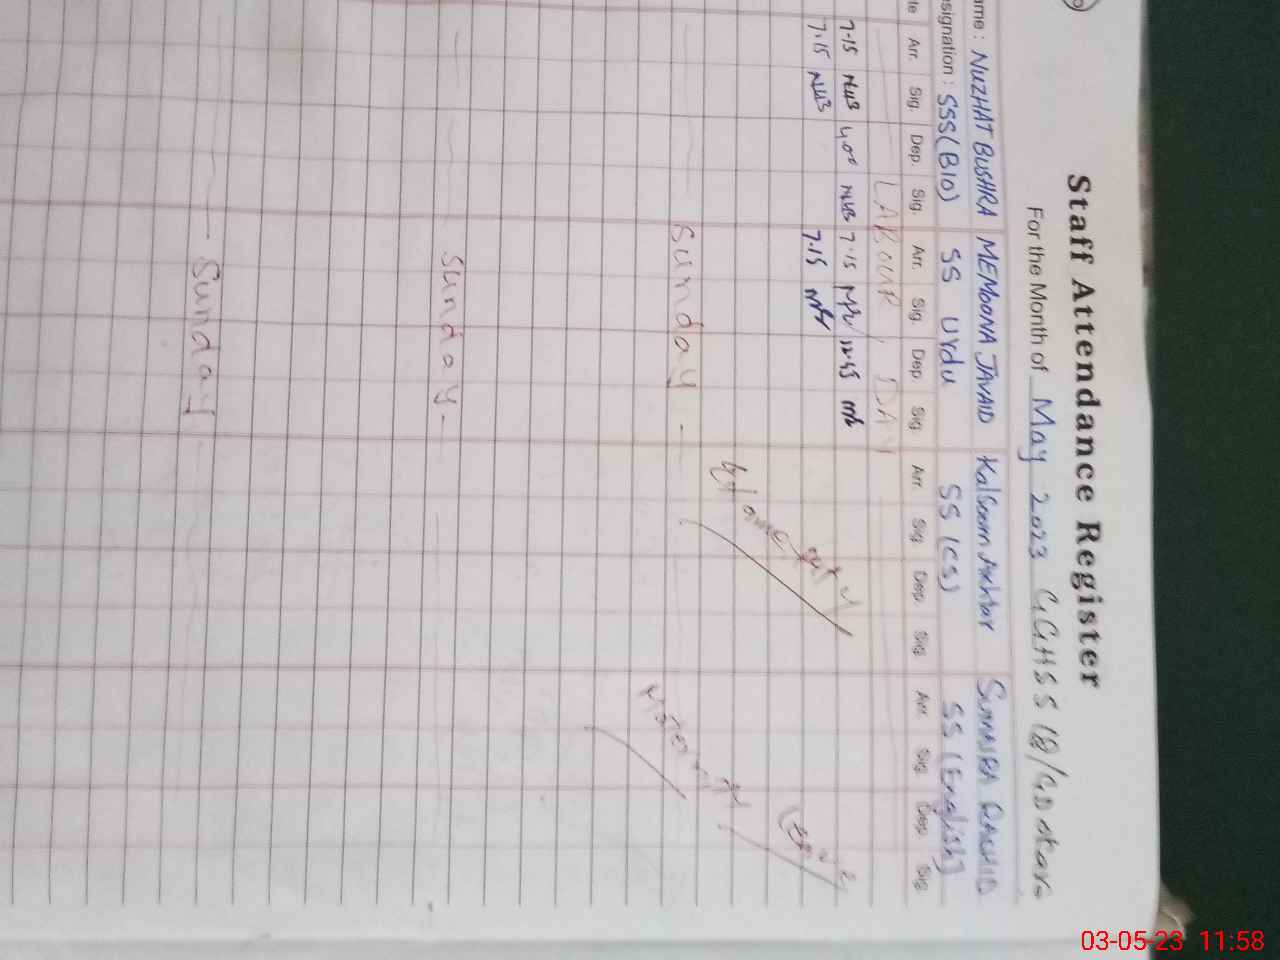 Staff Attendance Register
For the Month of May 2023 GGHSS 18/GD
ame : NUZHAT BUSHRA MEMOONA JAVAID Kalsoom Akhtar SUMAIRA RASHID
signation : SSS(BIO) SS Urdu SS (CS) SS (English)
te Arr. Sig. Dep. Sig. Arr. Sig. Dep Sig. Arr. Sig. Dep. Sig. Arr. Sig. Dep. Sig
LABOUR DAY
7-15 NUB 4.00 NUB 7.15 12.45
7.15 NUB 7.15
Maternity
Sunday
Sunday
Sunday
03-05-23 11:58